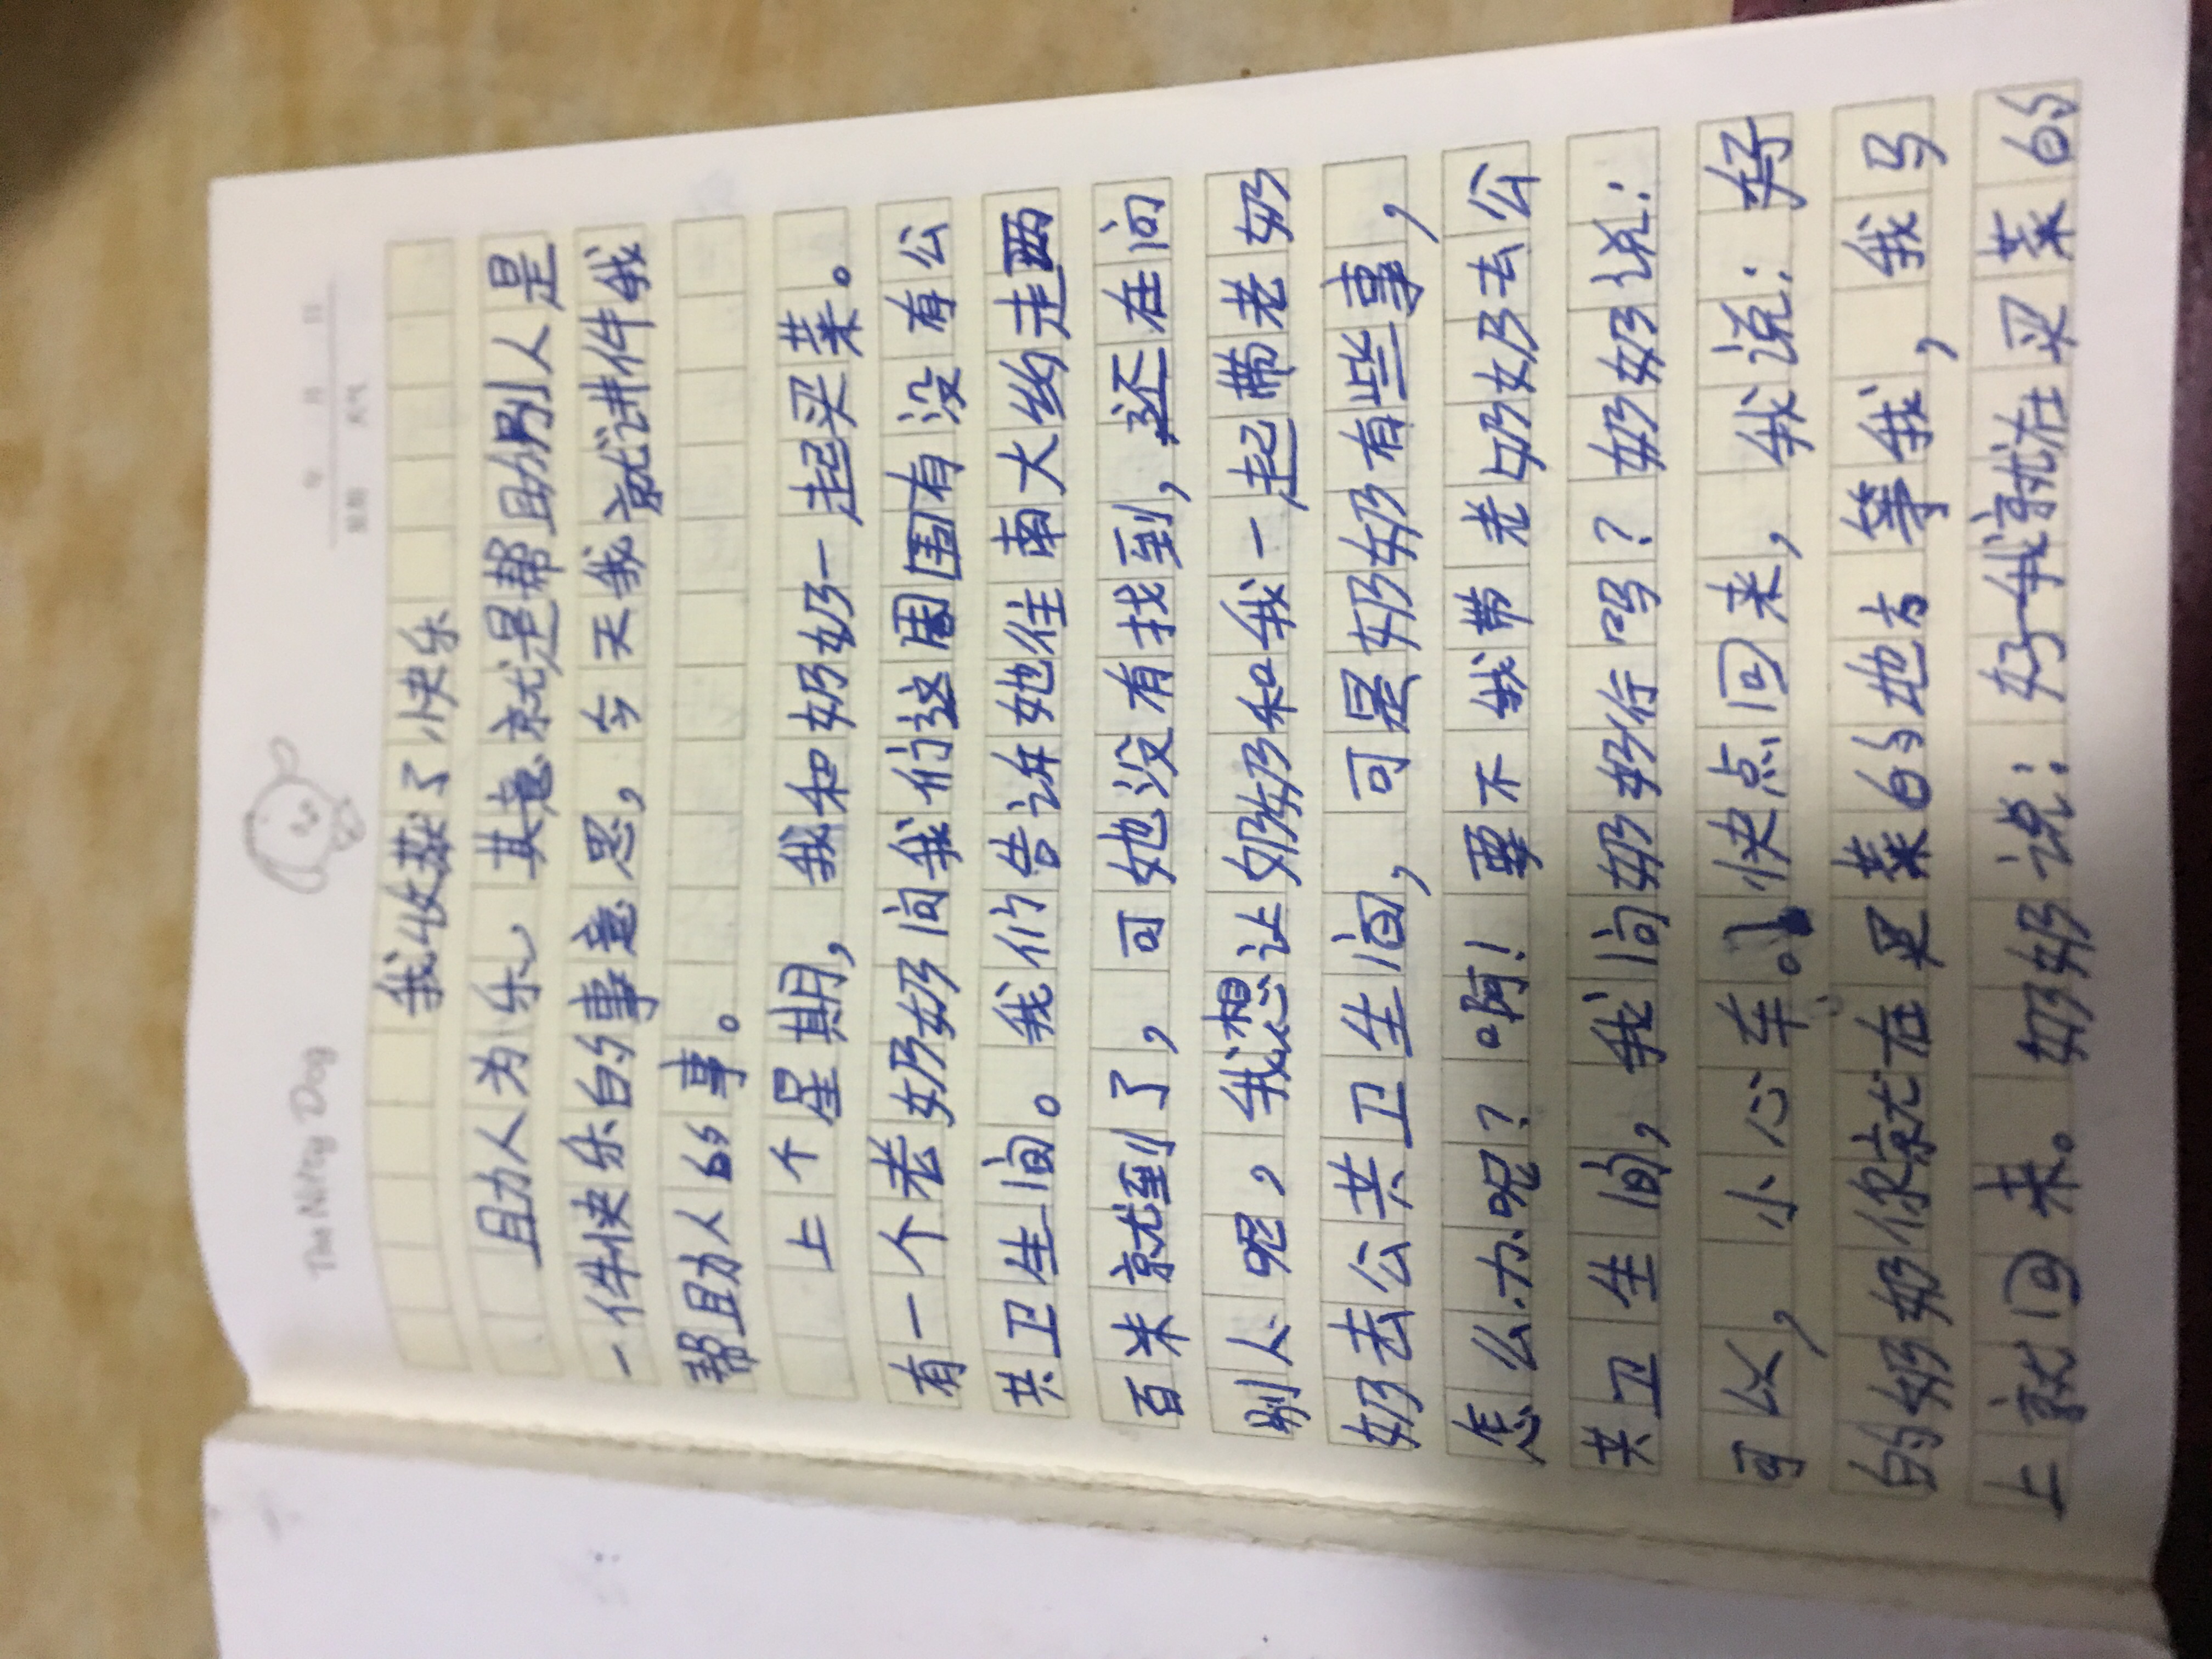 The Nifty Dog
年 月 日
星期 天气
我收获了快乐
助人为乐,其意就是帮助别人是
一件快乐的事意思,今天我就讲件我
帮助人的事。
上个星期,我和奶奶一起买菜。
有一个老奶奶问我们这周围有没有公
共卫生间。我们告诉她往南大约走两
百米就到了,可她没有找到,还在问
别人呢,我想让奶奶和我一起带老奶
奶去公共卫生间,可是奶奶有些事,
怎么办呢?啊!要不我带老奶奶去公
共卫生间,我问奶奶行吗?奶奶说:
可以,小心车。快点回来,我说:好
的奶奶你就在买菜的地方等我,我马
上就回来。奶奶说:好我就在买菜的